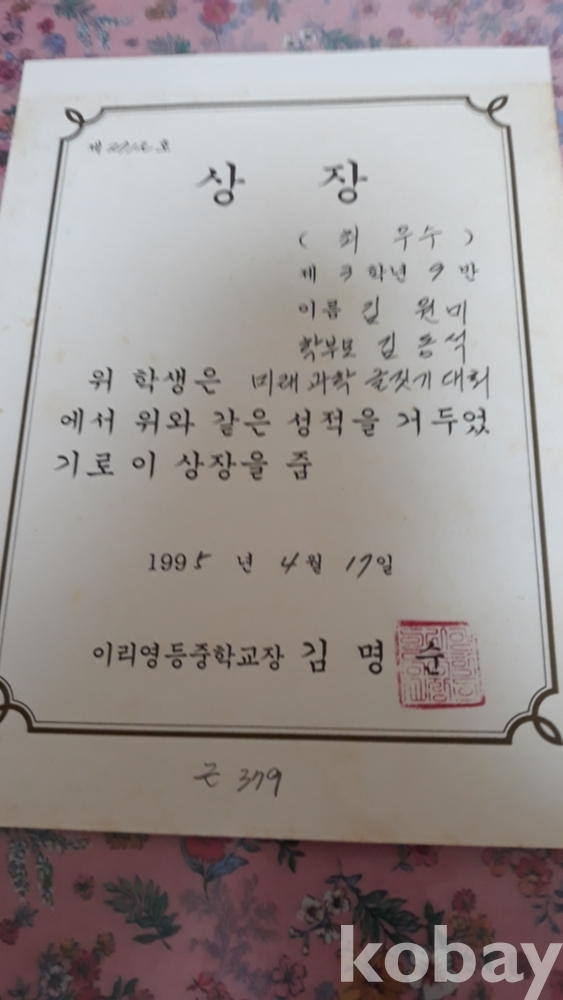 제 호
상 장
( 최 우수 )
제 3 학년 9 반
이름 김 원미
학부모 김 동석
위 학생은 미래 과학 글짓기 대회
에서 위와 같은 성적을 거두었
기로 이 상장을 줍
1995 년 4 월 17 일
이리영등중학교장 김 명 순
근 379
kobay